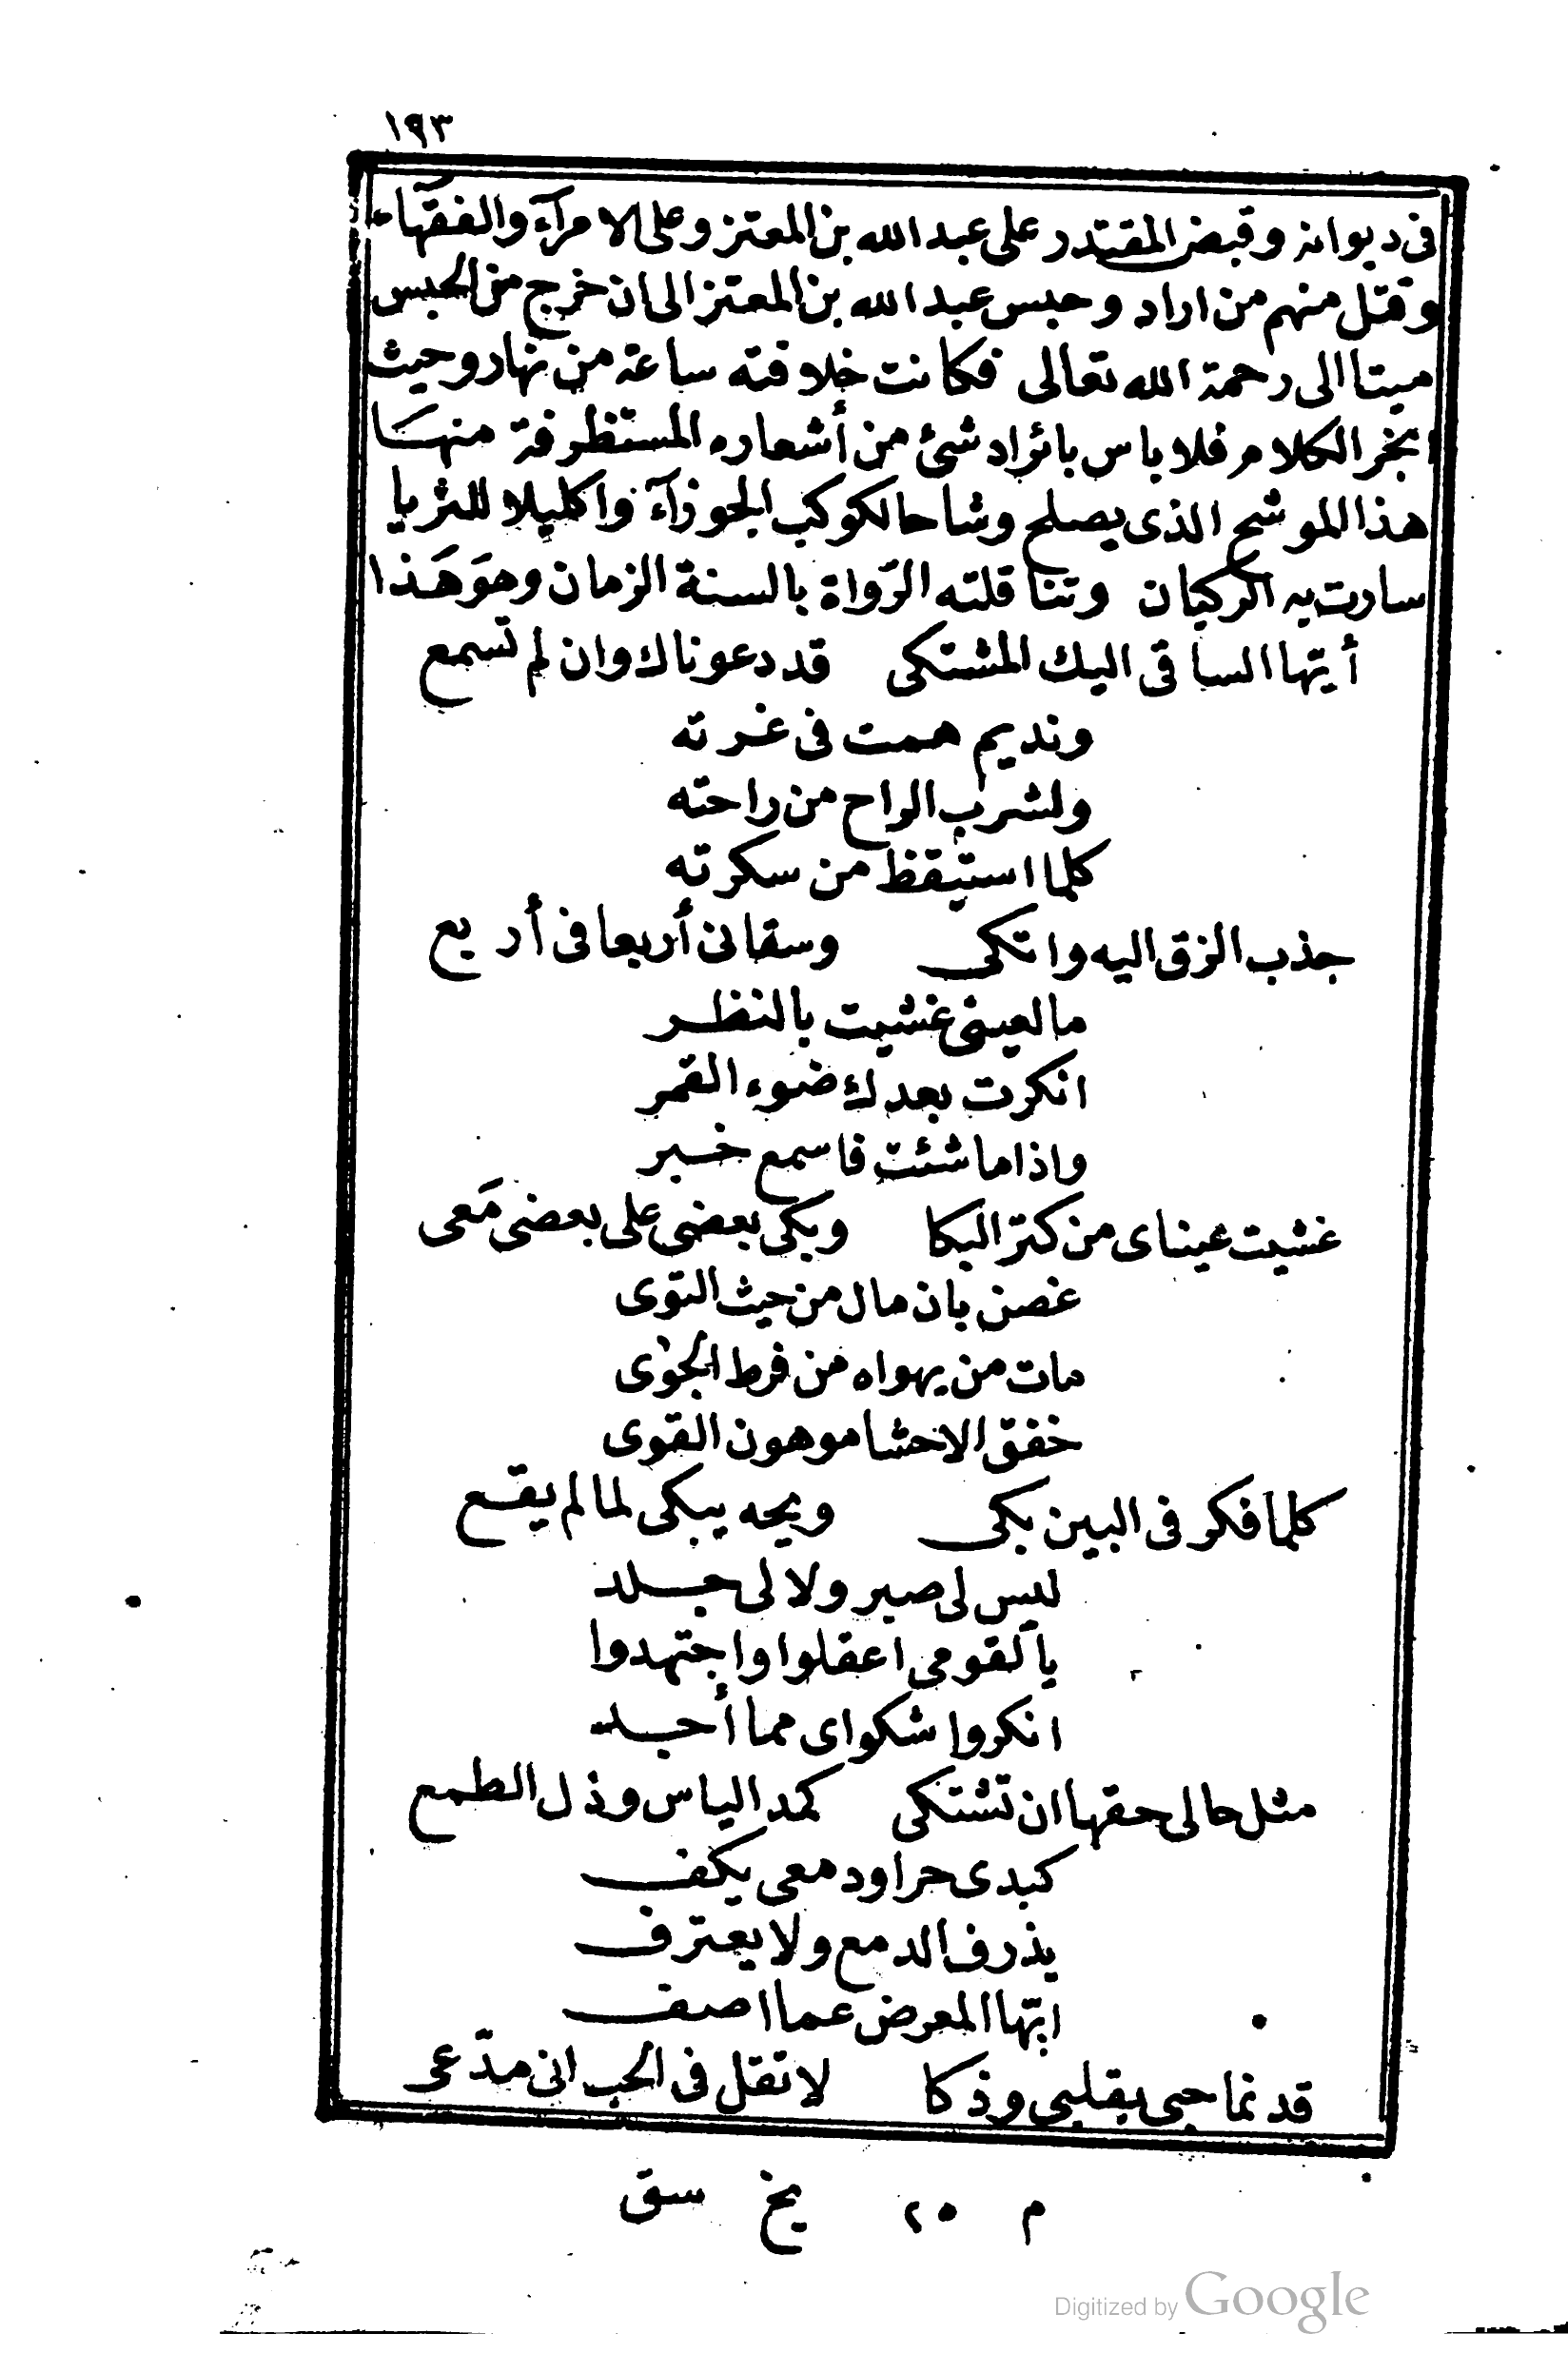 ١٩٣
فى ديوانه وقبض المقتدر على عبد الله بن المعتز وعلى الامرآء والفقهاء
وقتل منهم من اراد وحبس عبد الله بن المعتز الى ان خرج من الحبس
ميتا الى رحمة الله تعالى فكانت خلافته ساعة من نهار وحيث
انجر الكلام فلا باس بائراد شئ من أشعاره المستظرفة منها
هذا الموشح الذى يصلح وشاحا لكوكب الجوزآء واكليلا للثريا
سارت به الركبان وتناقلته الرواة بالسنة الزمان وهو هَذا
أيتها الساقى اليك المشتكى قد دعوناك وان لم تسمع
ونديم همت فى غرته
ولشرب الراح من راحته
كلما استيقظ من سكرته
جذب الزق اليه واتكى وسقانى أربعا فى أربع
ما لعينى غشيت بالنظر
انكرت بعدك ضوء القمر
واذا ما شئت فاسمع خبر
غشيت عيناى من كتر البكا وبكى بعضى على بعضى مَعى
غصن بان مال من حيث التوى
مات من يهواه من فرط الجوى
خفق الاحشا موهون القوى
كلما فكر فى البين بكى ويحه يبكى لما لم يقع
ليس لى صبر ولا لى جلد
يا لقومى اعقلوا واجتهدوا
انكروا شكواى مما أجد
مثل حالى حقها ان تشتكى كمد الياس وذل الطمع
كبدى حرا ودمعى يكف
يذرف الدمع ولا يعترف
ايّها المعرض عما اصف
قد نما حبى بقلبى وذكا لا تقل فى الحب انى مدّعى
م ٢٥ يخ سق
Digitized by Google